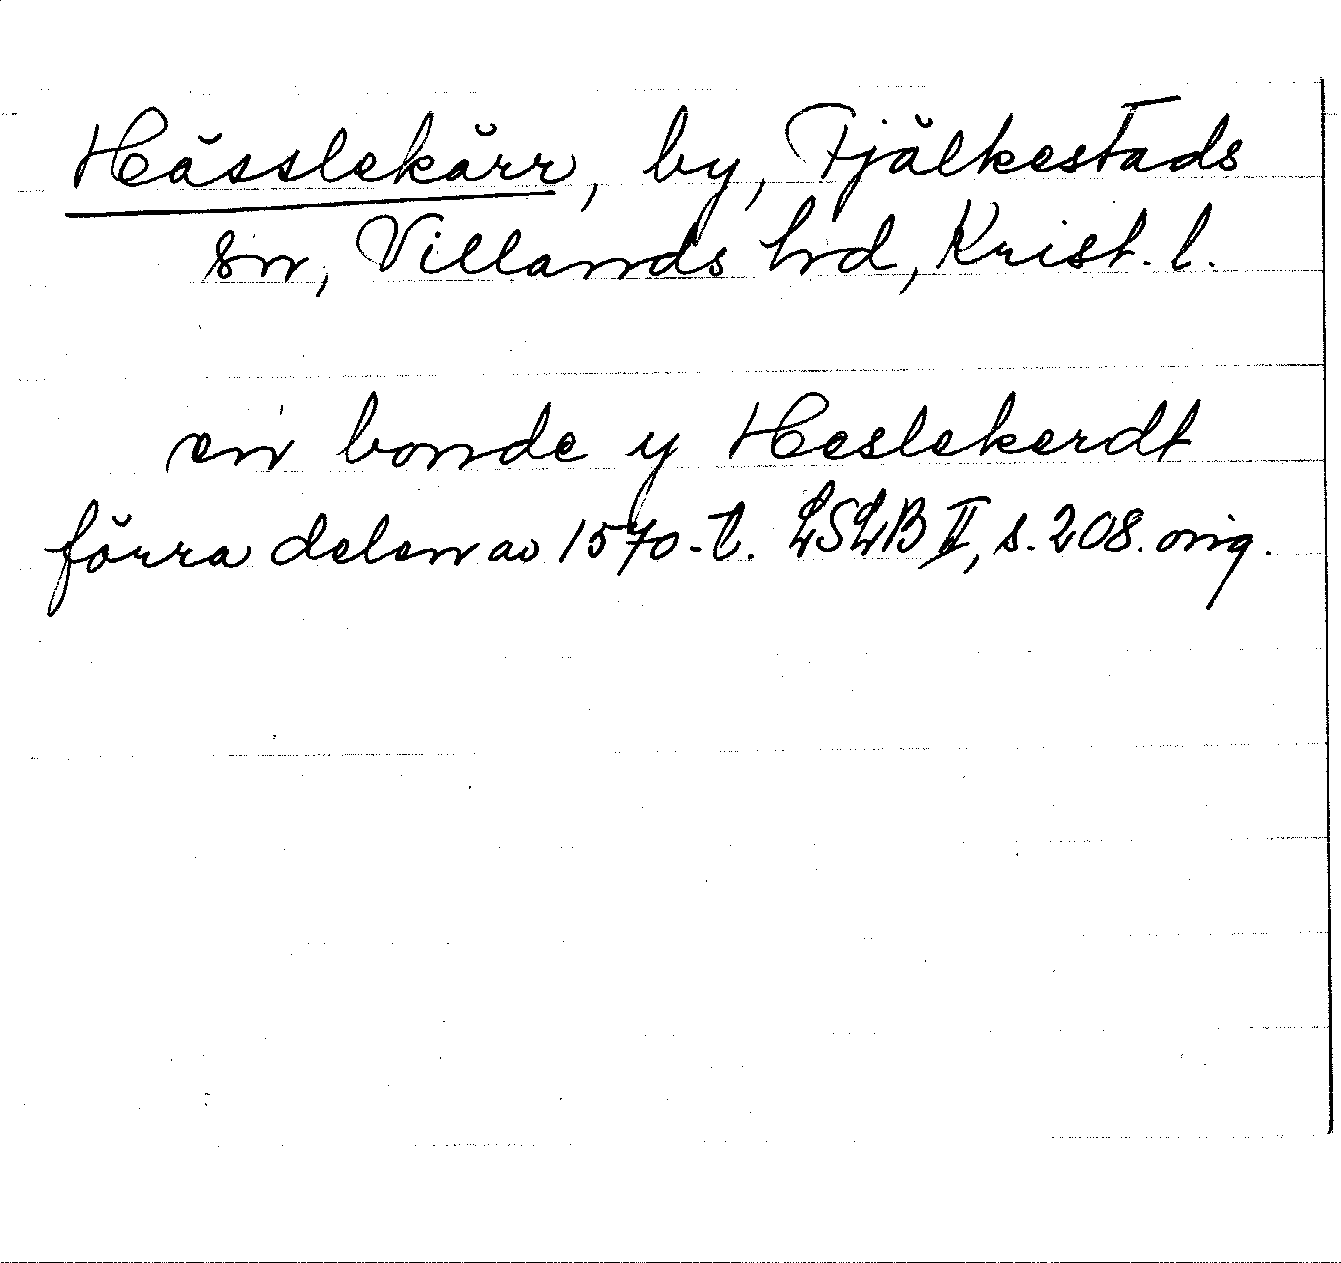 Hässlekärr, by, Fjälkestads
sn, Villands hd, Krist. l.
en bonde y Heslekerdt
förra delen av 1570-t. LSLB II, s. 208. orig.